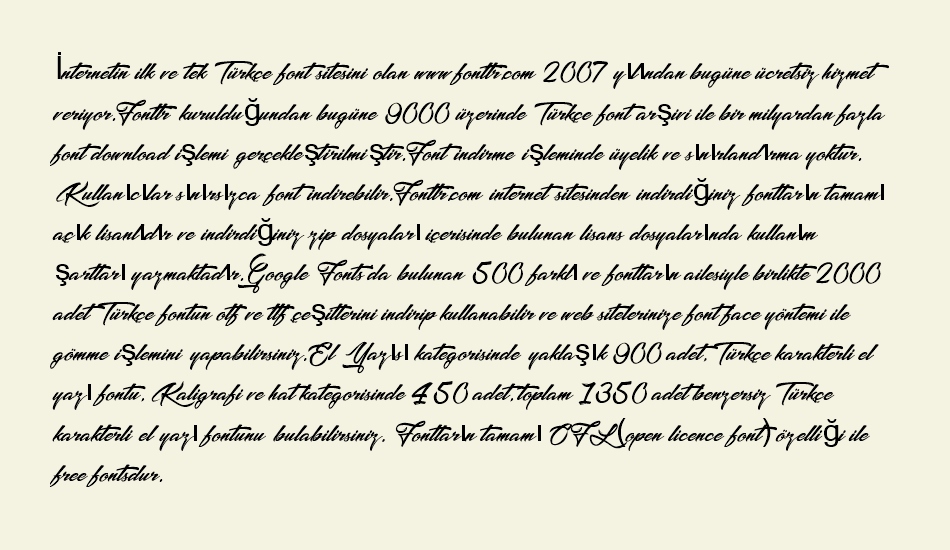 İnternetin ilk ve tek Türkçe font sitesini olan www.fonttr.com 2007 yılından bugüne ücretsiz hizmet
veriyor.Fonttr kurulduğundan bugüne 9000 üzerinde Türkçe font arşivi ile bir milyardan fazla
font download işlemi gerçekleştirilmiştir.Font indirme işleminde üyelik ve sınırlandırma yoktur.
Kullanıcılar sınırsızca font indirebilir.Fonttr.com internet sitesinden indirdiğiniz fontların tamamı
açık lisanlıdır ve indirdiğiniz zip dosyaları içerisinde bulunan lisans dosyalarında kullanım
şartları yazmaktadır.Google Fonts da bulunan 500 farklı ve fontların ailesiyle birlikte 2000
adet Türkçe fontun otf ve ttf çeşitlerini indirip kullanabilir ve web sitelerinize font face yöntemi ile
gömme işlemini yapabilirsiniz.El Yazısı kategorisinde yaklaşık 900 adet, Türkçe karakterli el
yazı fontu, Kaligrafi ve hat kategorisinde 450 adet,toplam 1350 adet benzersiz Türkçe
karakterli el yazı fontunu bulabilirsiniz. Fontların tamamı OFL(open licence font) özelliği ile
free fontsdur.